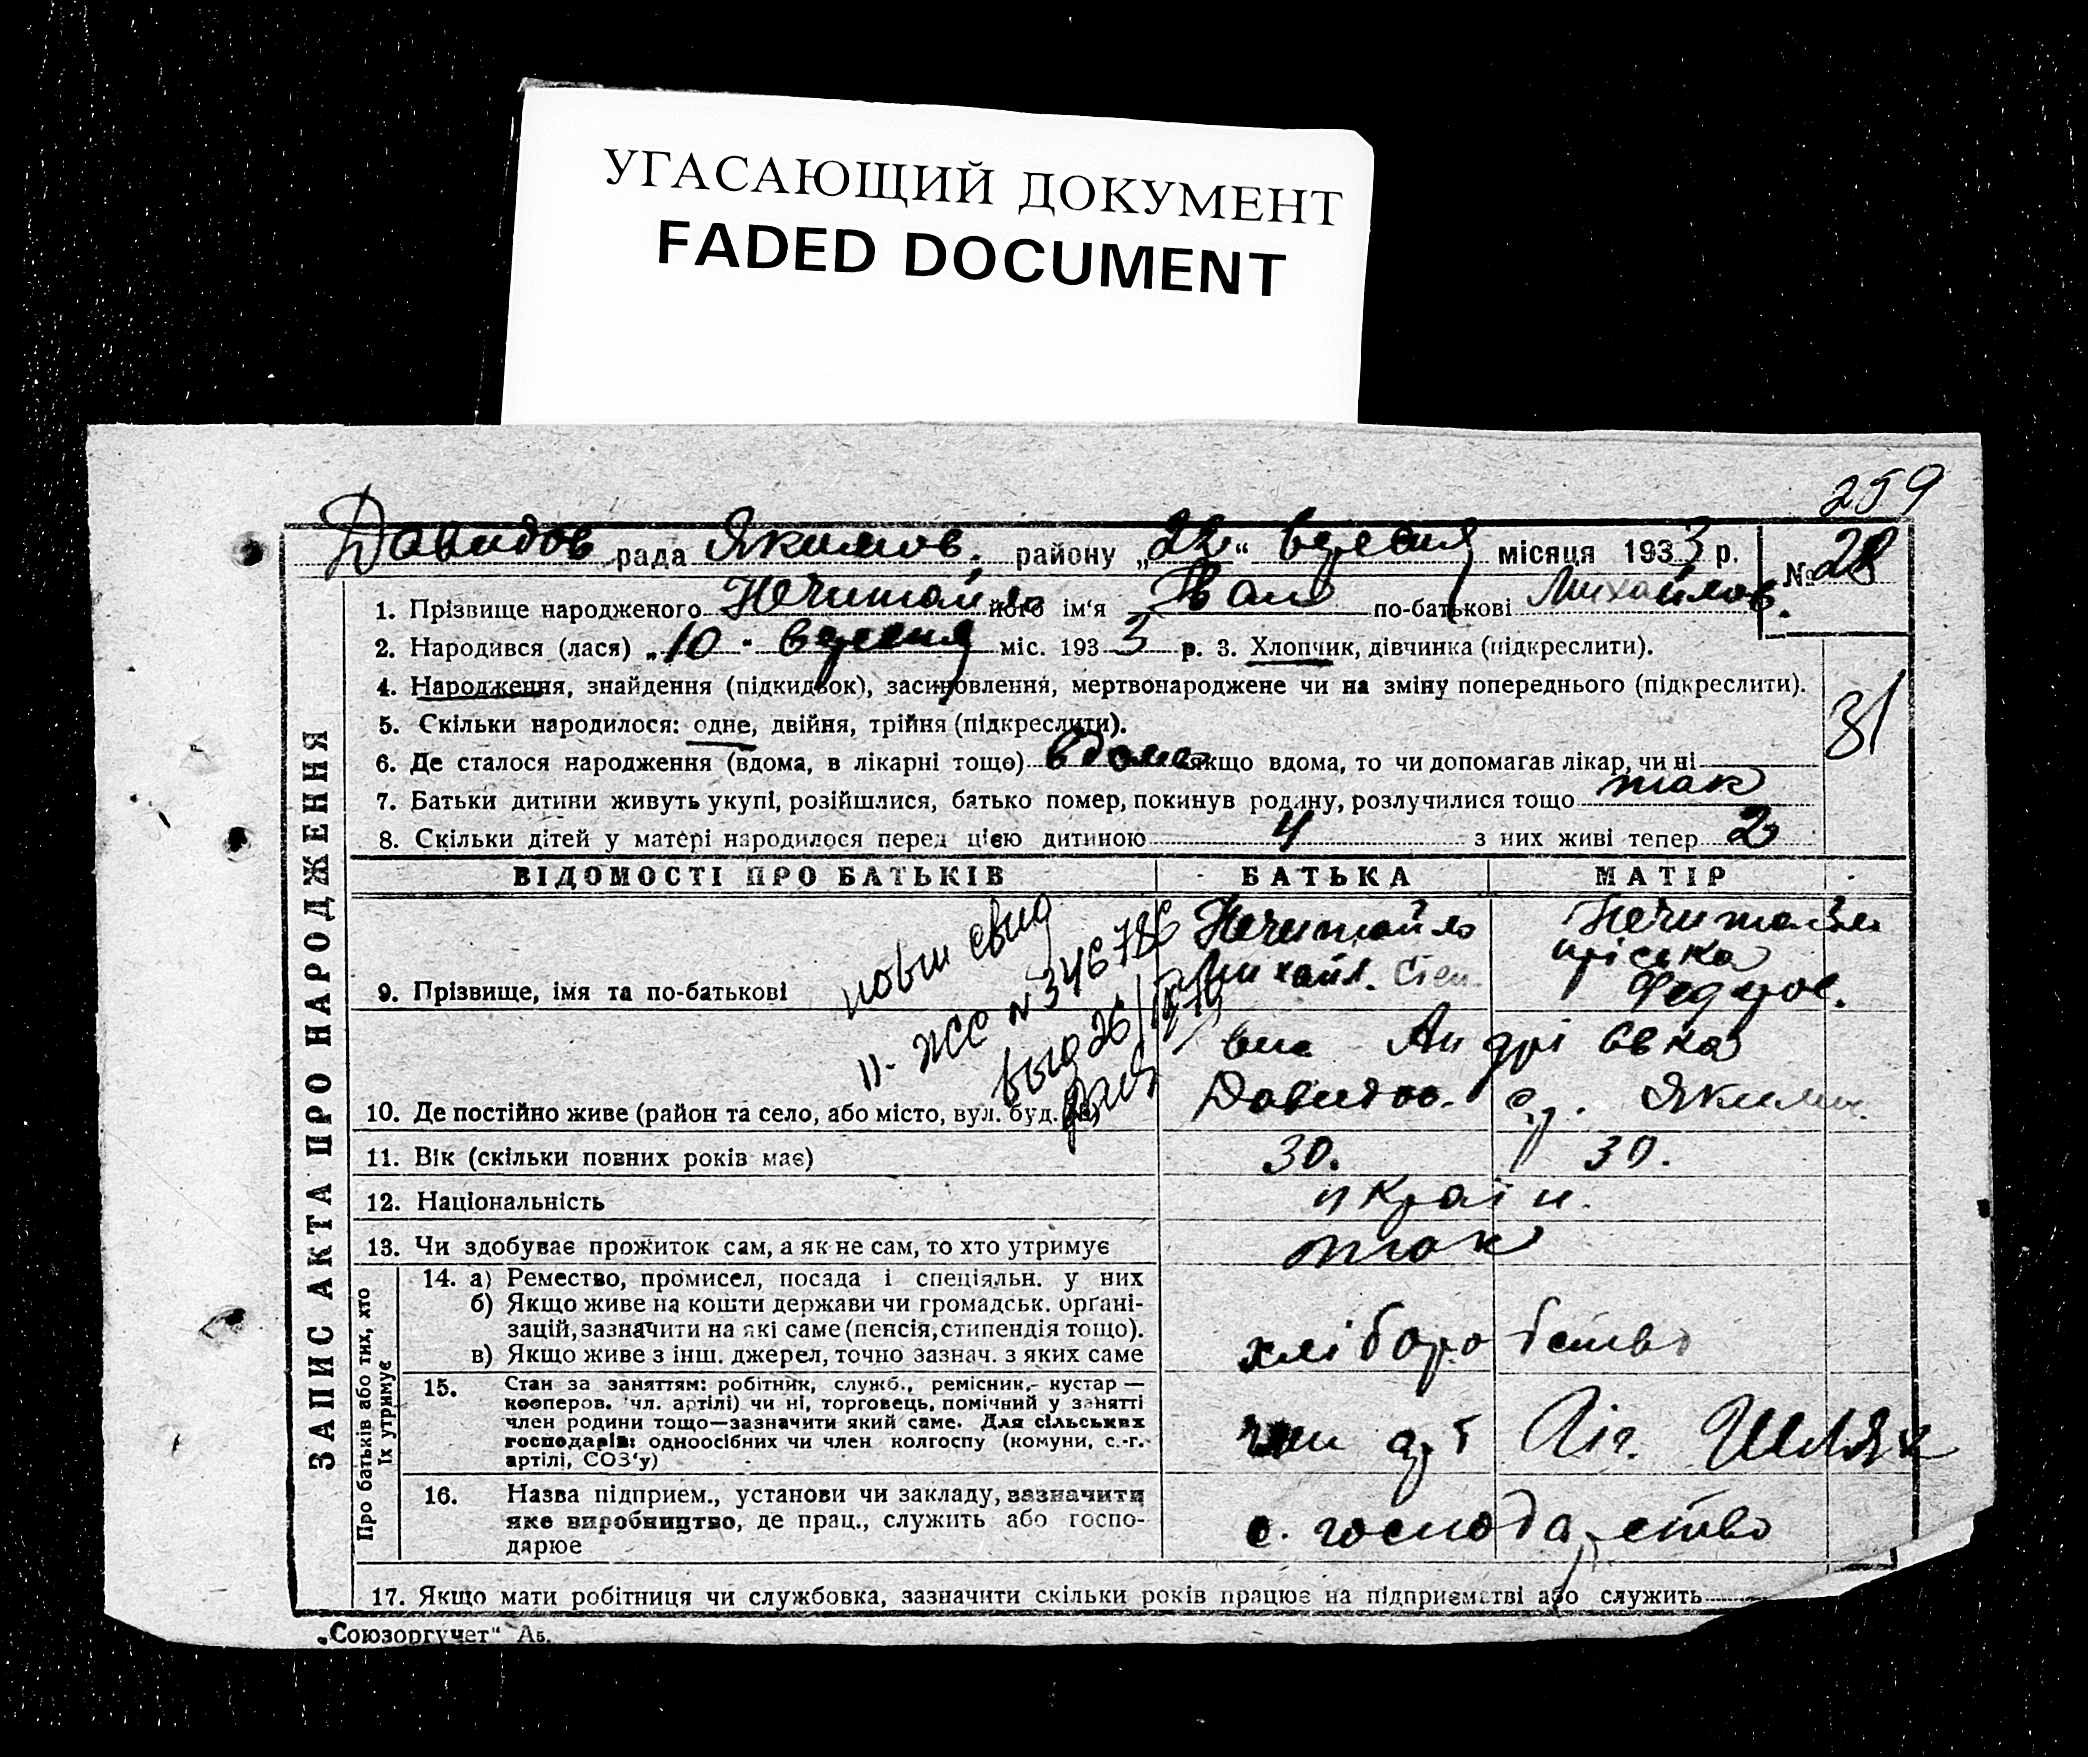 УГАСАЮЩИЙ ДОКУМЕНТ
FADED DOCUMENT
259
Давидов рада Якимов. району „22“ вересня місяця 1933 р. № 28
1. Прізвище народженого Нечитайло його ім'я Іван по-батькові Михайлов.
2. Народився (лася) „10“ вересня міс. 1933 р. 3. Хлопчик, дівчинка (підкреслити).
4. Народження, знайдення (підкидьок), засиновлення, мертвонароджене чи на зміну попереднього (підкреслити).
31
5. Скільки народилося: одне, двійня, трійня (підкреслити).
6. Де сталося народження (вдома, в лікарні тощо) вдома якщо вдома, то чи допомагав лікар, чи ні
7. Батьки дитини живуть укупі, розійшлися, батько помер, покинув родину, розлучилися тощо так
8. Скільки дітей у матері народилося перед цією дитиною 4 з них живі тепер 2
ЗАПИС АКТА ПРО НАРОДЖЕННЯ
ВІДОМОСТІ ПРО БАТЬКІВ БАТЬКА МАТІР
9. Прізвище, імя та по-батькові
Нечитайло
Михайл. Сем.
Нечитайло
Пріська
Федоров.
II- ЖСС № 346786
выд 26/
10. Де постійно живе (район та село, або місто, вул. буд. №)
Андрі ївка
Давидов. Якимов.
11. Вік (скільки повних років має) 30. 30.
12. Національність україн.
13. Чи здобуває прожиток сам, а як не сам, то хто утримує так
Про батьків або тих, хто їх утримує
14. а) Ремество, промисел, посада і спеціяльн. у них
б) Якщо живе на кошти держави чи громадськ. органі-
зацій, зазначити на які саме (пенсія, стипендія тощо).
в) Якщо живе з інш. джерел, точно зазнач. з яких саме
хліборобство
15. Стан за заняттям: робітник, служб., ремісник,- кустар —
кооперов. чл. артілі) чи ні, торговець, помічний у занятті
член родини тощо—зазначити який саме. Для сільських
господарів: одноосібних чи член колгоспу (комуни, с.-г.
артілі, СОЗ'у)
член Шлях
16. Назва підприєм., установи чи закладу, зазначити
яке виробництво, де прац., служить або госпо-
дарює
с. господарство
17. Якщо мати робітниця чи службовка, зазначити скільки років працює на підприємстві або служить
„Союзоргучет“ А5.